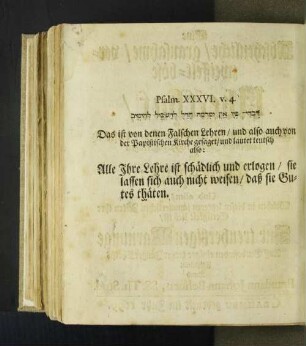 Psalm. XXXVI. v. 4.
דברי פיו און ומרמה חדל להשכיל להיטיב
Das ist von denen Falschen Lehren / und also auch von
der Papistischen Kirche gesaget / und lautet teutsch
also:
Alle Ihre Lehre ist schädlich und erlogen / sie
lassen sich auch nicht weisen / daß sie Gu-
tes thäten.